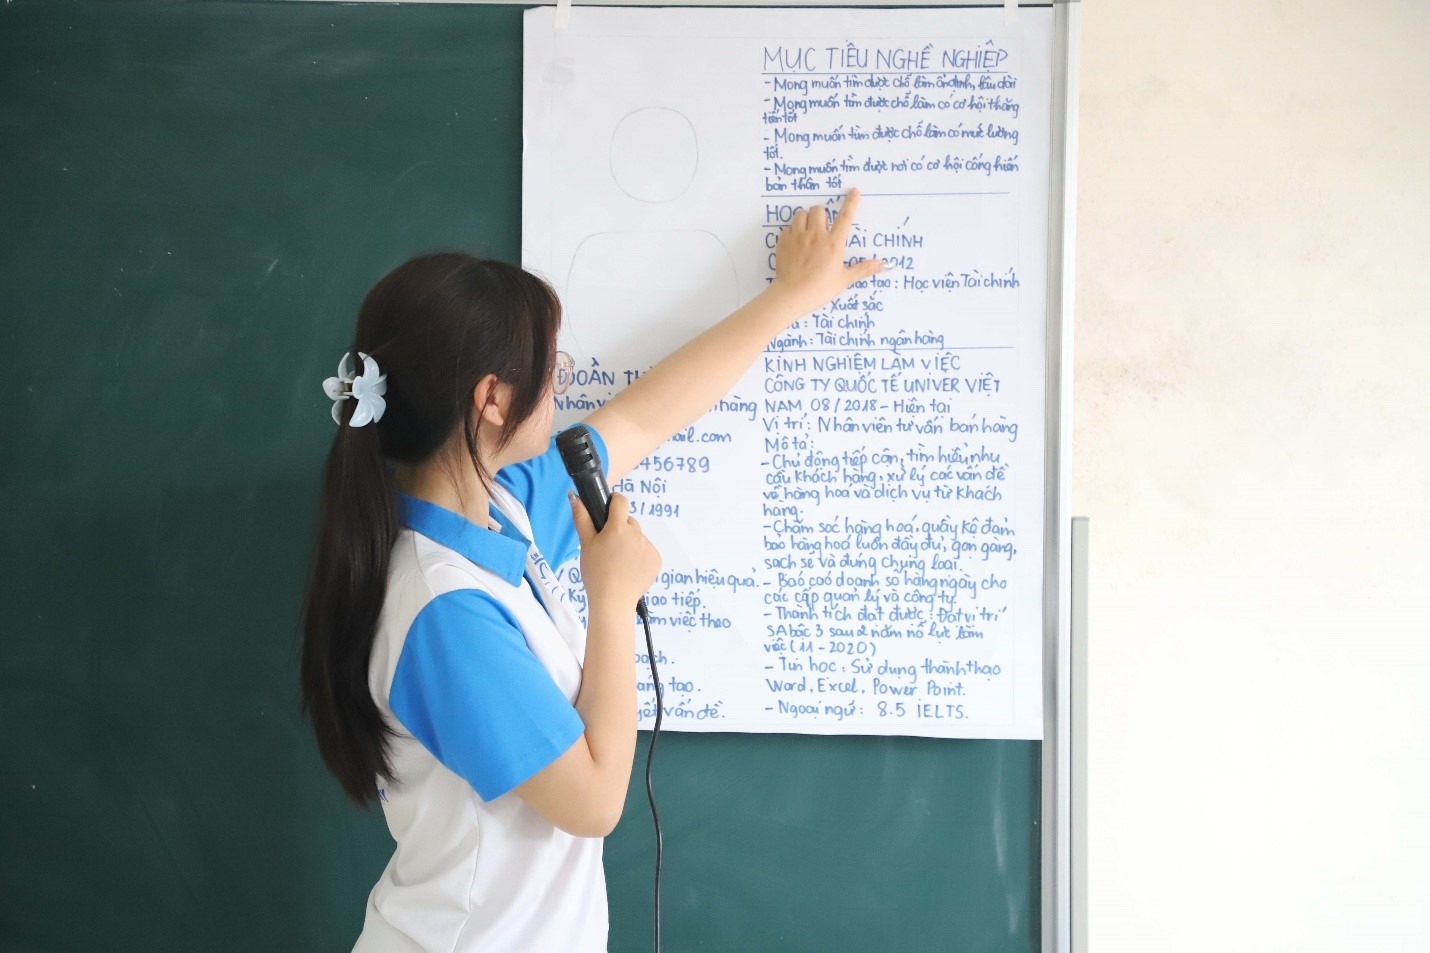 MỤC TIÊU NGHỀ NGHIỆP
- Mong muốn tìm được chỗ làm ổn định, lâu dài
- Mong muốn tìm được chỗ làm có cơ hội thăng
tiến tốt
- Mong muốn tìm được chỗ làm có mức lương
tốt.
- Mong muốn tìm được nơi có cơ hội cống hiến
bản thân tốt
HỌC
TÀI CHÍNH
- 05/2012
tạo : Học viện Tài chính
: Xuất sắc
: Tài chính
Ngành : Tài chính ngân hàng
KINH NGHIỆM LÀM VIỆC
CÔNG TY QUỐC TẾ UNIVER VIỆT
NAM 08/2018 - Hiện tại
Vị trí : Nhân viên tư vấn bán hàng
Mô tả :
- Chủ động tiếp cận, tìm hiểu nhu
cầu khách hàng, xử lý các vấn đề
về hàng hoá và dịch vụ từ khách
hàng.
- Chăm sóc hàng hoá, quầy kệ đảm
bảo hàng hoá luôn đầy đủ, gọn gàng,
sạch sẽ và đúng chủng loại.
- Báo cáo doanh số hàng ngày cho
các cấp quản lý và công ty.
- Thành tích đạt được : Đạt vị trí
SA bậc 3 sau 2 năm nỗ lực làm
việc (11 - 2020)
- Tin học : Sử dụng thành thạo
Word, Excel, Power Point.
- Ngoại ngữ : 8.5 IELTS.
ĐOÀN
Nhân hàng
.com
456789
Hà Nội
3/1991
gian hiệu quả.
Kỹ giao tiếp.
làm việc theo
tạo.
vấn đề.